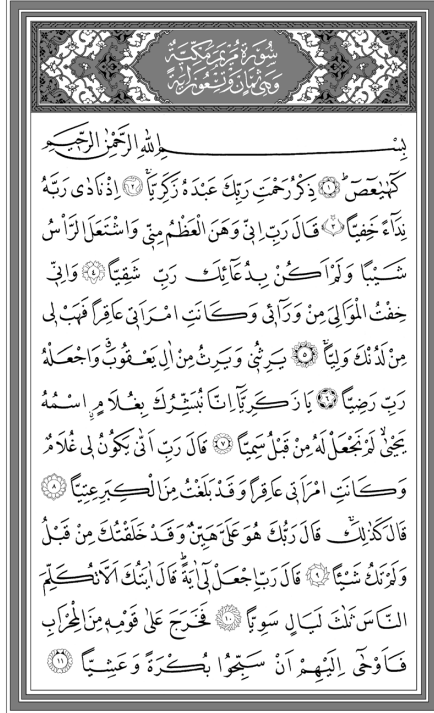 سُورَةُ مَرْيَمَ مَكِّيَّةٌ
وَهِيَ ثَمَانٍ وَتِسْعُونَ اٰيَةً
بِسْمِ اللّٰهِ الرَّحْمٰنِ الرَّحٖيمِ
كٓهٰيٰعٓصٓ ﴿١﴾ ذِكْرُ رَحْمَتِ رَبِّكَ عَبْدَهُ زَكَرِيَّا ﴿٢﴾ اِذْ نَادٰى رَبَّهُ
نِدَٓاءً خَفِيًّا ﴿٣﴾ قَالَ رَبِّ اِنّٖى وَهَنَ الْعَظْمُ مِنّٖى وَاشْتَعَلَ الرَّاْسُ
شَيْبًا وَلَمْ اَكُنْ بِدُعَٓائِكَ رَبِّ شَقِيًّا ﴿٤﴾ وَاِنّٖى
خِفْتُ الْمَوَالِىَ مِنْ وَرَٓائٖى وَكَانَتِ امْرَاَتٖى عَاقِرًا فَهَبْ لٖى
مِنْ لَدُنْكَ وَلِيًّا ﴿٥﴾ يَرِثُنٖى وَيَرِثُ مِنْ اٰلِ يَعْقُوبَ وَاجْعَلْهُ
رَبِّ رَضِيًّا ﴿٦﴾ يَا زَكَرِيَّٓا اِنَّا نُبَشِّرُكَ بِغُلَامٍ اسْمُهُ
يَحْيٰى لَمْ نَجْعَلْ لَهُ مِنْ قَبْلُ سَمِيًّا ﴿٧﴾ قَالَ رَبِّ اَنّٰى يَكُونُ لٖى غُلَامٌ
وَكَانَتِ امْرَاَتٖى عَاقِرًا وَقَدْ بَلَغْتُ مِنَ الْكِبَرِ عِتِيًّا ﴿٨﴾
قَالَ كَذٰلِكَ قَالَ رَبُّكَ هُوَ عَلَىَّ هَيِّنٌ وَقَدْ خَلَقْتُكَ مِنْ قَبْلُ
وَلَمْ تَكُ شَيْـًٔا ﴿٩﴾ قَالَ رَبِّ اجْعَلْ لٖٓى اٰيَةً قَالَ اٰيَتُكَ اَلَّا تُكَلِّمَ
النَّاسَ ثَلٰثَ لَيَالٍ سَوِيًّا ﴿١٠﴾ فَخَرَجَ عَلٰى قَوْمِهٖ مِنَ الْمِحْرَابِ
فَاَوْحٰٓى اِلَيْهِمْ اَنْ سَبِّحُوا بُكْرَةً وَعَشِيًّا ﴿١١﴾